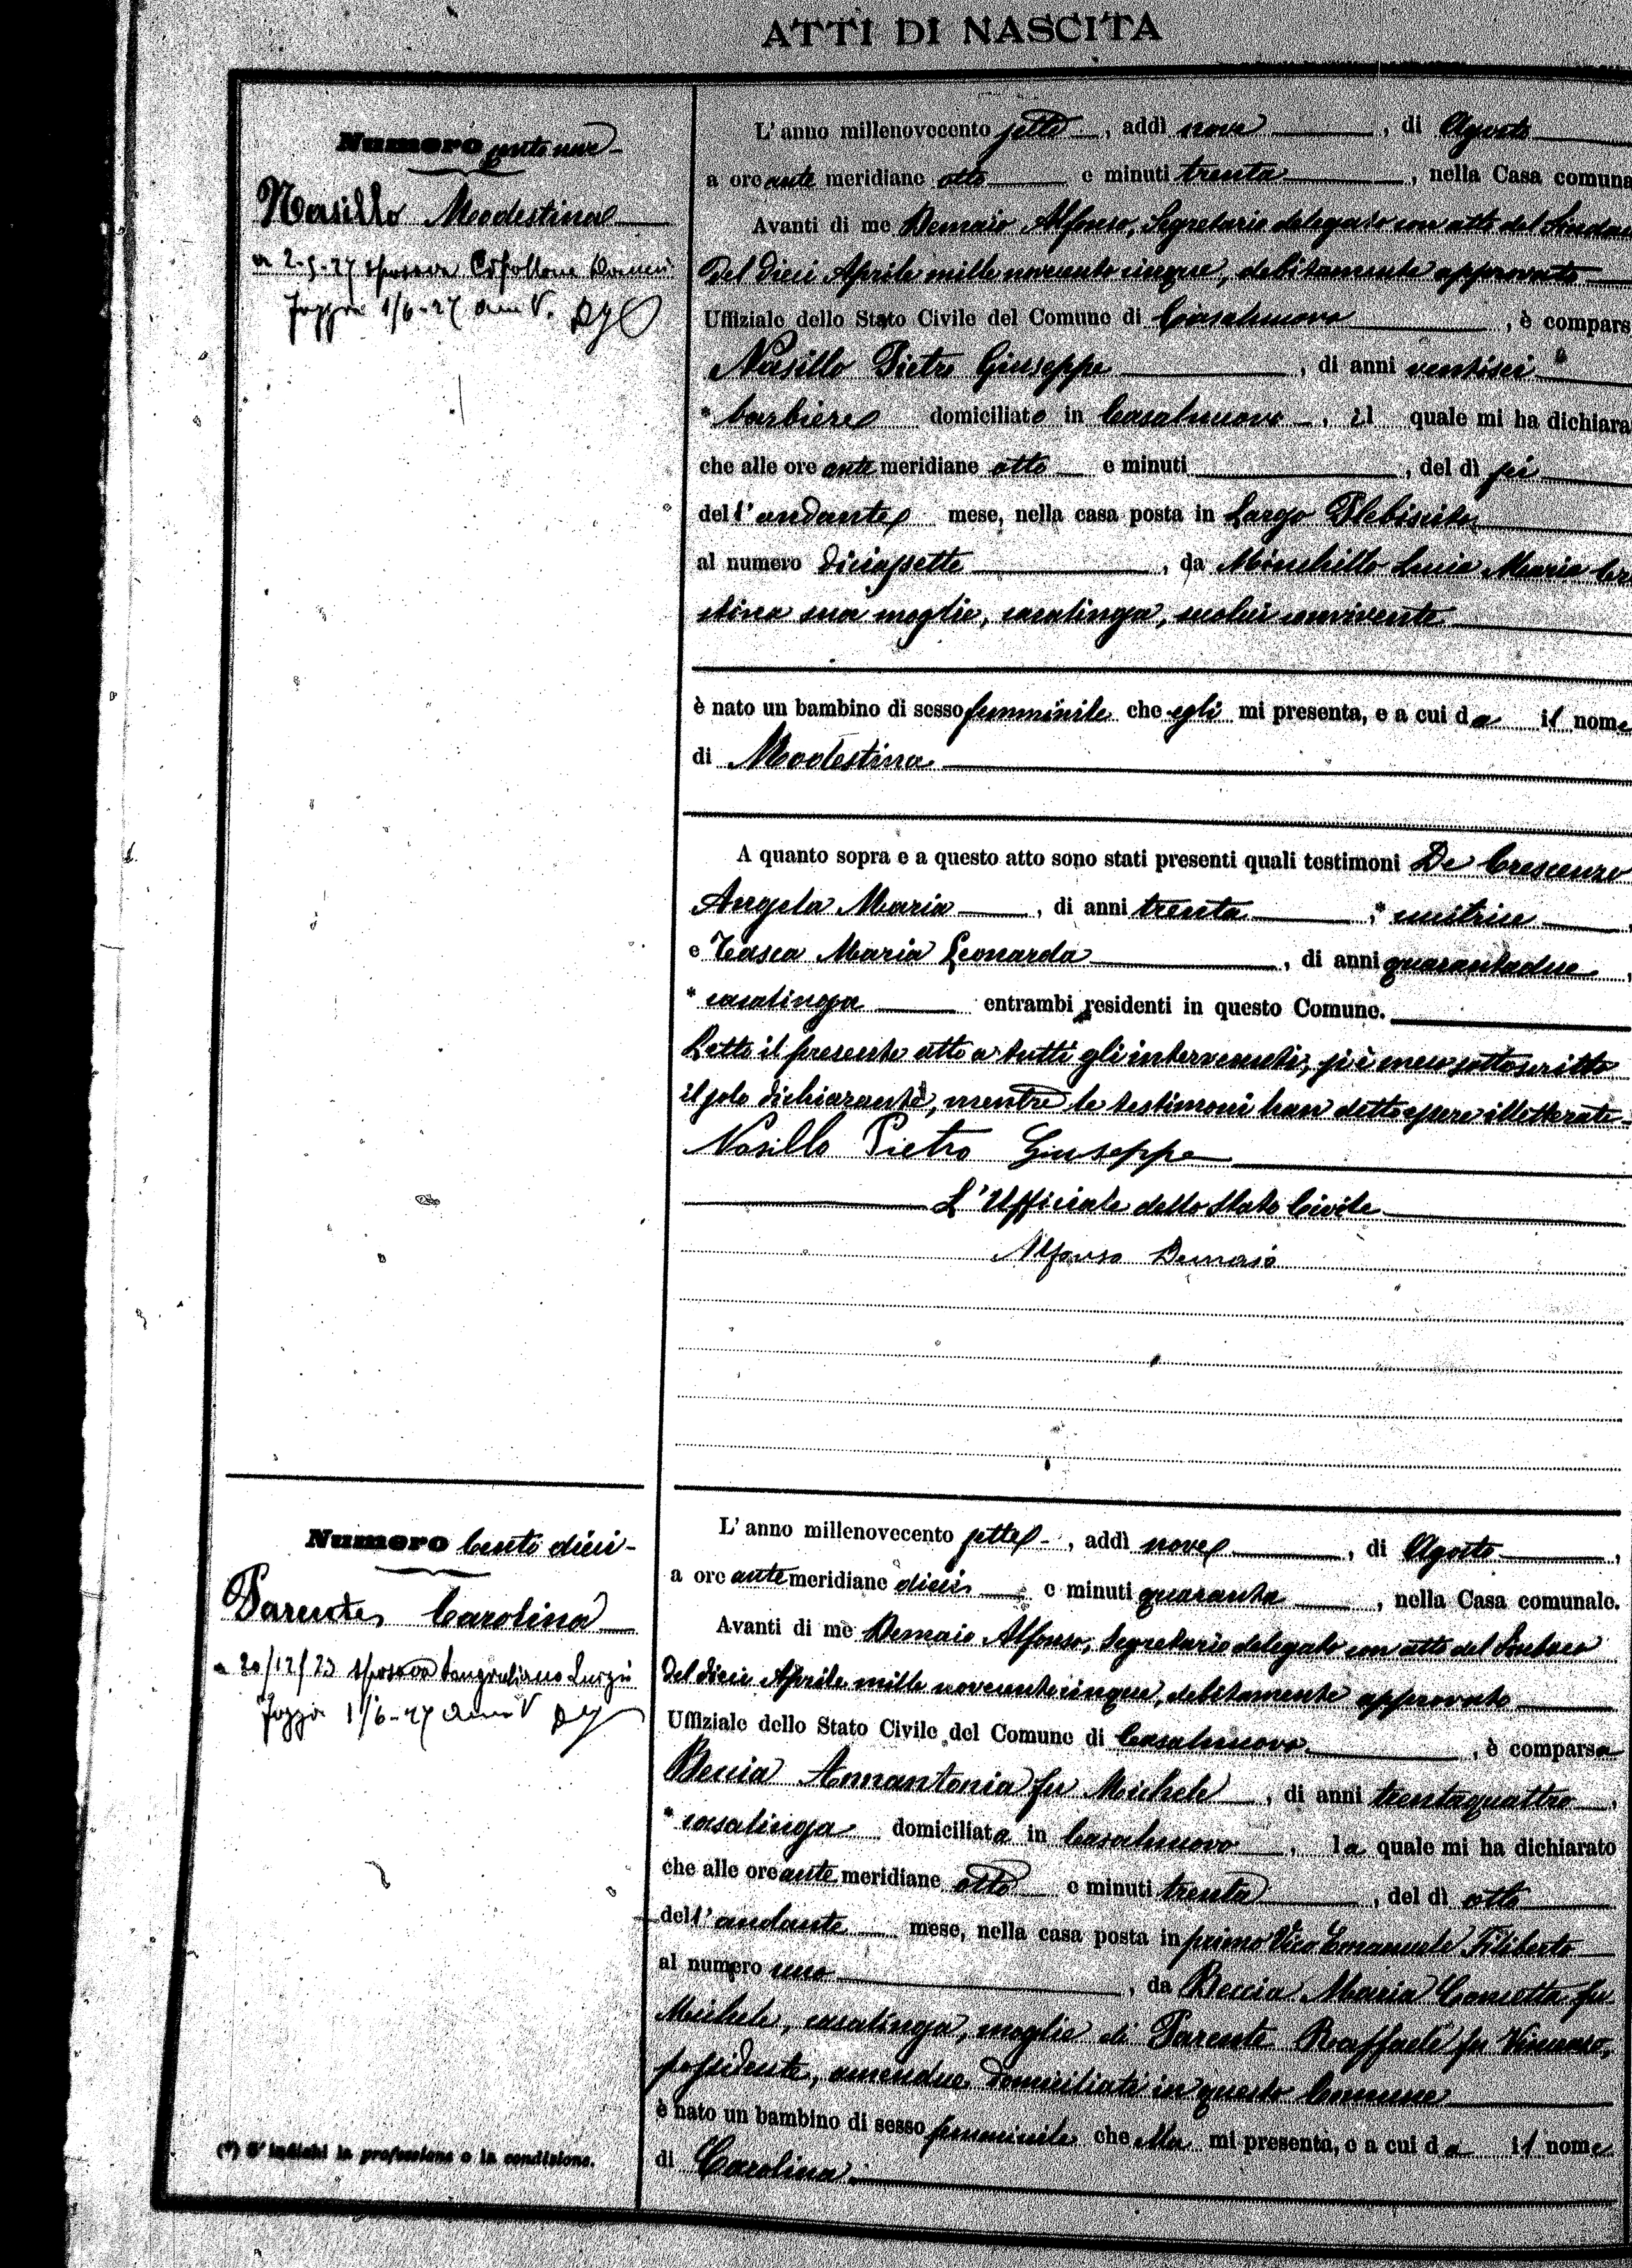 ATTI DI NASCITA
Numero cento nove
Nasillo Modestina
a 2-5-27 sposava
Foggia 1/6-27 Anno V.
L'anno millenovecento sette, addì nove, di Agosto
a ore ante meridiane otto e minuti trenta, nella Casa comuna
Avanti di me Demaio Alfonso, Segretario delegato con atto del Sindaco
del dieci Aprile mille novecento cinque, debitamente approvato
Uffiziale dello Stato Civile del Comune di Casalnuovo, è compars
Nasillo Pietro Giuseppe, di anni ventisei
* barbiere domiciliato in Casalnuovo, il quale mi ha dichiara
che alle ore ante meridiane otto e minuti , del dì sei
dell'andante mese, nella casa posta in Largo Plebiscito
al numero diciassette, da Minchillo Lucia Maria Cri
stina sua moglie, casalinga, seco lui convivente
è nato un bambino di sesso femminile che egli mi presenta, e a cui da il nome
di Modestina
A quanto sopra e a questo atto sono stati presenti quali testimoni De Crescenzo
Angela Maria, di anni trenta, * cucitrice
e Casca Maria Leonarda, di anni quarantadue,
* casalinga entrambi residenti in questo Comune.
Letto il presente atto a tutti gli intervenuti, si è meco sottoscritto
il solo dichiarante, mentre le testimoni han detto essere illetterate.
Nasillo Pietro Giuseppe
L'Ufficiale dello Stato Civile
Alfonso Demaio
Numero Cento dieci
Parente, Carolina
a 20/12/23 sposava Longruliano Luigi
Foggia 1/6-27 Anno V
L'anno millenovecento sette, addì nove, di Agosto,
a ore ante meridiane dieci e minuti quaranta, nella Casa comunale.
Avanti di me Demaio Alfonso, Segretario delegato con atto del Sindaco
del dieci Aprile mille novecento cinque, debitamente approvato
Uffiziale dello Stato Civile del Comune di Casalnuovo, è comparsa
Beccia Annantonia fu Michele, di anni trentaquattro,
* casalinga domiciliata in Casalnuovo, la quale mi ha dichiarato
che alle ore ante meridiane otto e minuti trenta, del dì otto
dell'andante mese, nella casa posta in primo Vico Emanuele Filiberto
al numero uno, da Beccia Maria Concetta fu
Michele, casalinga, moglie di Parente Raffaele fu Vincenzo,
possidente, amendue domiciliati in questo Comune
è nato un bambino di sesso femminile che ella mi presenta, e a cui da il nome
di Carolina
(*) S'indichi la professione o la condizione.